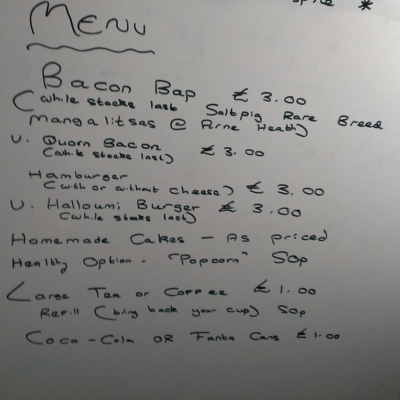 *
Menu
Bacon Bap £3.00
(while stocks last Saltpig Rare Breed
Mangalitsas @ Arne Heath)
V. Quorn Bacon £3.00
(while stocks last)
Hamburger
(with or without cheese) £3.00
V. Halloumi Burger £3.00
(while stocks last)
Homemade Cakes - As priced
Healthy Option - "Popcorn" 50p
Large Tea or Coffee £1.00
Refill (bring back your cup) 50p
Coca-Cola OR Fanta Cans £1.00